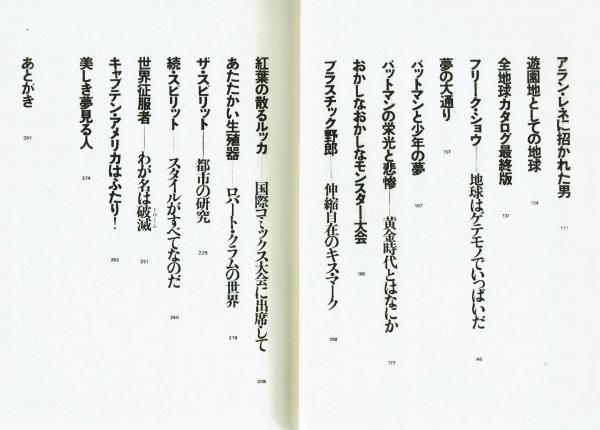 アラン・レネに招かれた男 111
遊園地としての地球 124
全地球カタログ最終版 137
フリーク・ショウ――地球はゲテモノでいっぱいだ 146
夢の大通り 157
バットマンと少年の夢 167
バットマンの栄光と悲惨――黄金時代とはなにか 177
おかしなおかしなモンスター大会 188
プラスチック野郎――伸縮自在のキス・マーク 198
紅葉の散るルッカ――国際コミックス大会に出席して 208
あたたかい生殖器――ロバート・クラムの世界 219
ザ・スピリット――都市の研究 229
続・スピリット――スタイルがすべてなのだ 240
世界征服者――わが名は破滅 ドゥーム 251
キャプテン・アメリカはふたり! 262
美しき夢見る人 274
あとがき 287